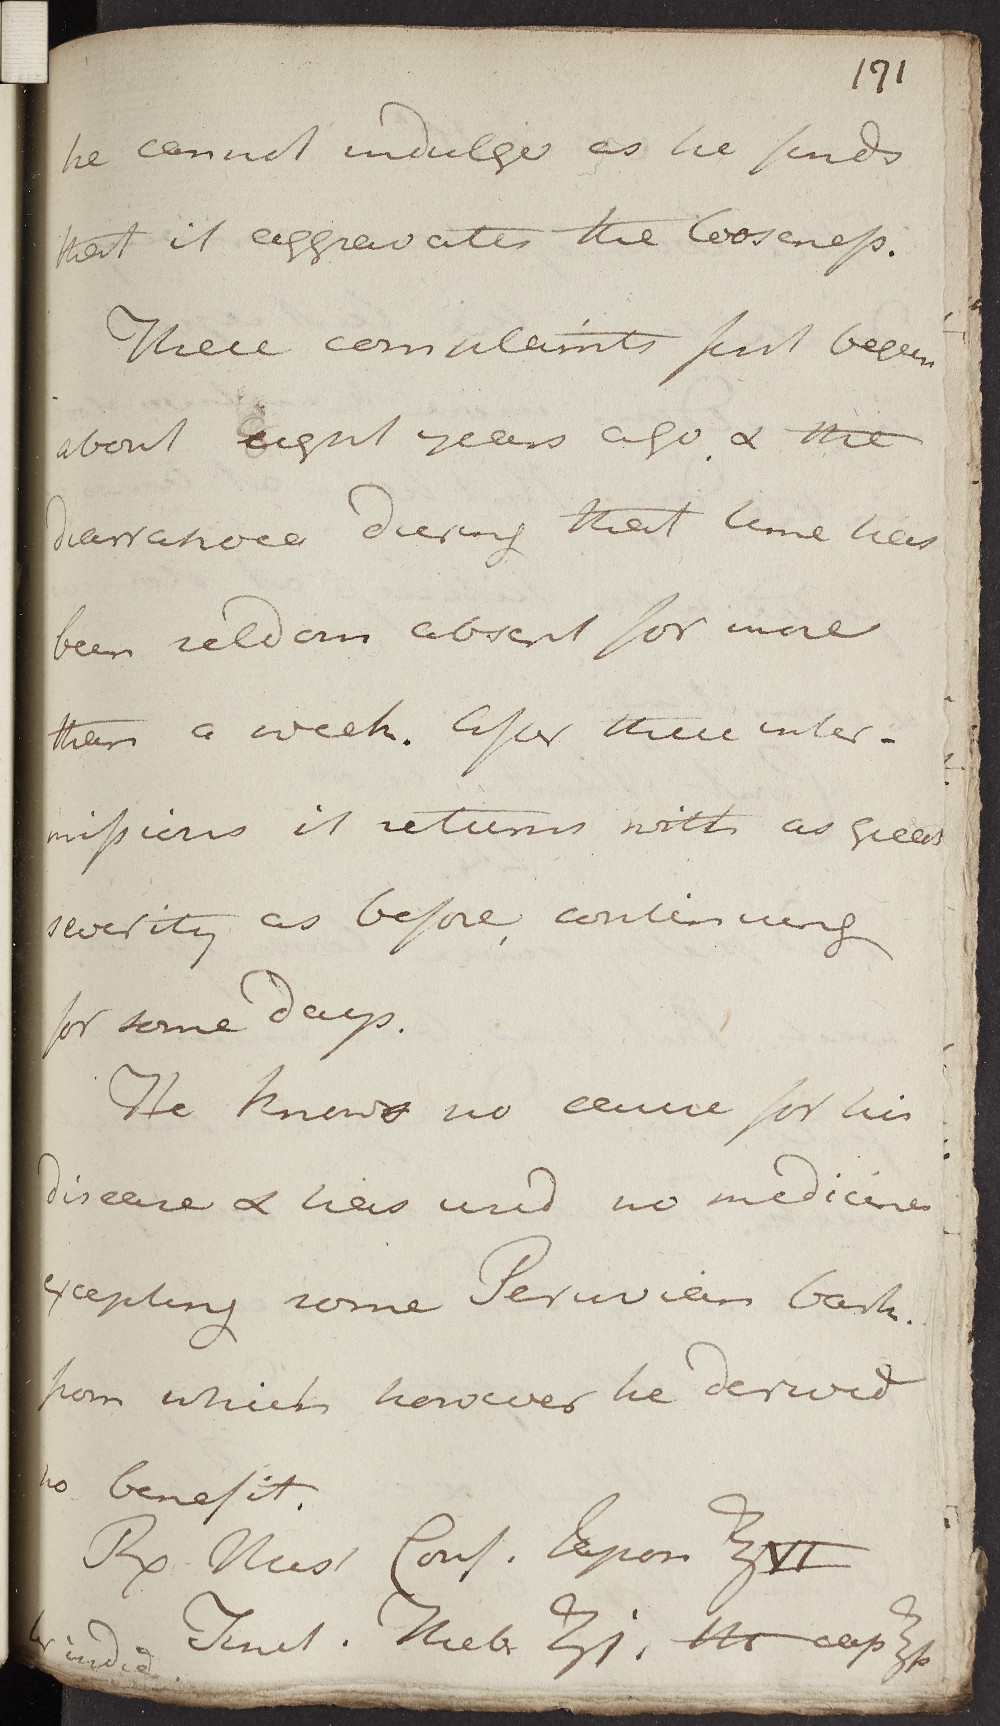 171
he cannot indulge as he finds
that it aggravates the looseness.
These complaints first began
about eight years ago, & the
diarrahoea during that time has
been seldom absent for more
than a week. After these inter-
missions it returns with as great
severity as before, continuing
for some days.
He knows no cause for his
disease & has used no medicines
excepting some Peruvian bark.
from which however he derived
no benefit.
Rx Must. Conf. Iapon ℥VI
Tinct. Theb. ℥j. M cap ℥ß
ter indies.